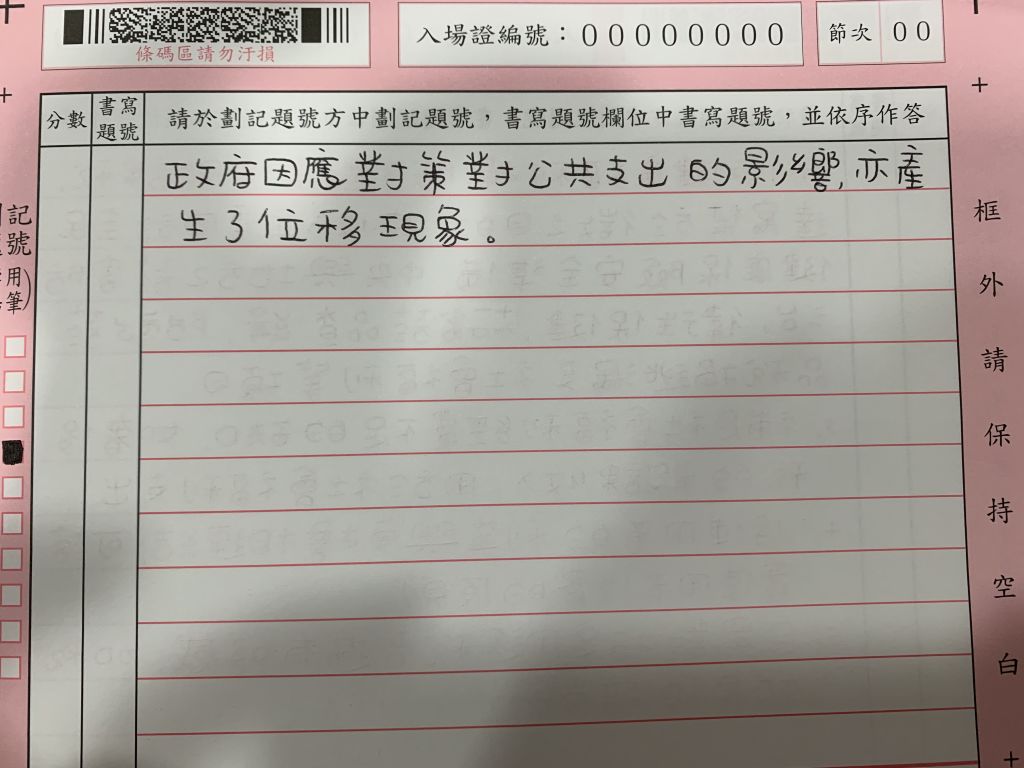 條碼區請勿汙損
入場證編號：00000000
節次 00
分數
書寫題號
請於劃記題號方中劃記題號，書寫題號欄位中書寫題號，並依序作答
政府因應對策對公共支出的影響,亦產
生了位移現象。
記
號
用
筆)
框外請保持空白